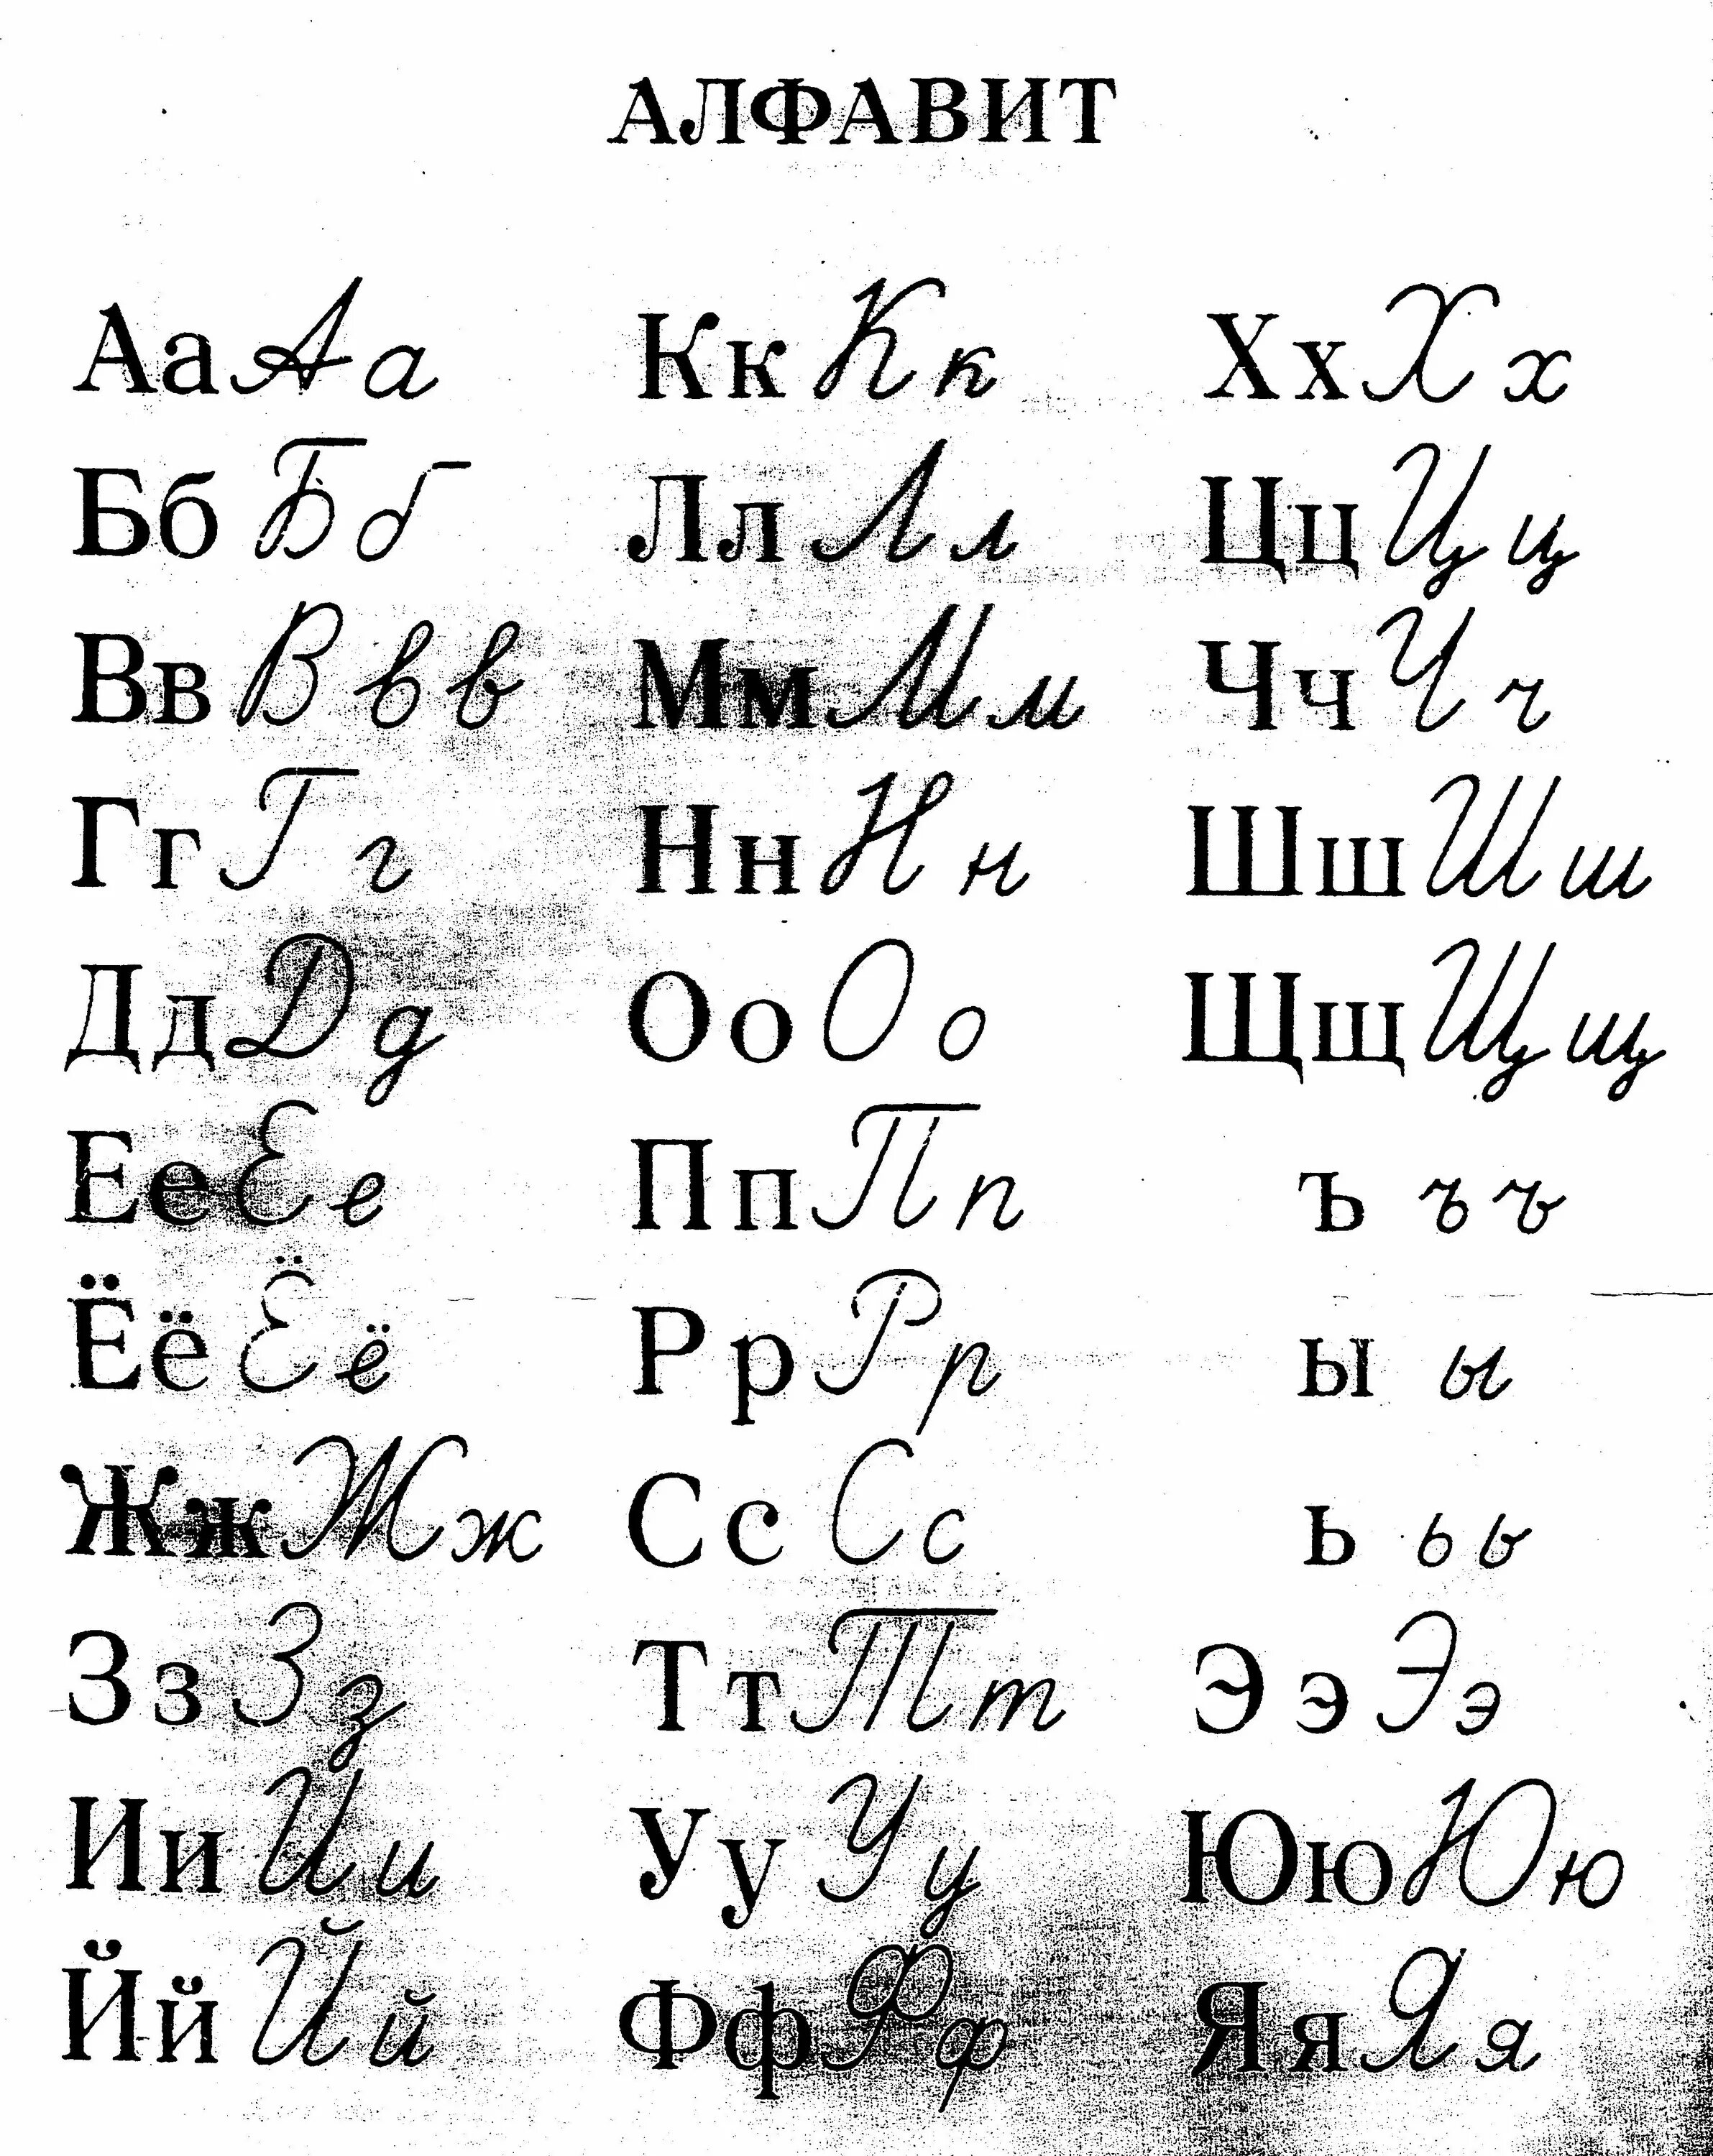 АЛФАВИТ
Аа Аа Кк Кк Хх Хх
Бб Бб Лл Лл Цц Цц
Вв Ввв Мм Мм Чч Чч
Гг Гг Нн Нн Шш Шш
Дд Дд Оо Оо Щщ Щщ
Ее Ее Пп Пп ъ ъъ
Ёё Ёё Рр Рр ы ы
Жж Жж Сс Сс ь ьь
Зз Зз Тт Тт Ээ Ээ
Ии Ии Уу Уу Юю Юю
Йй Йй Фф Фф Яя Яя